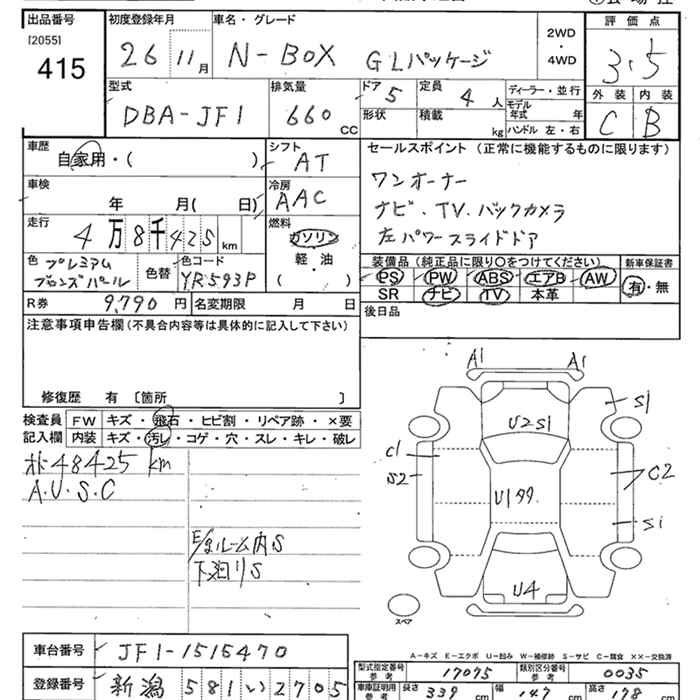 出品番号 初度登録年月 車名・グレード 評価点
[2055] 415 26 11月 N-BOX GLパッケージ 2WD・4WD 3.5
型式 排気量 ドア 5 定員 4人 ディーラー・並行 外装 内装
DBA-JF1 660cc 形状 積載 kg モデル年式 年 ハンドル 左・右 C B
車歴 シフト セールスポイント (正常に機能するものに限ります)
自家用・( ) AT ワンオーナー
車検 冷房 ナビ、TV、バックカメラ
年 月( 日) AAC 左パワースライドドア
走行 燃料
4万8千425km ガソリン
色 色替 色コード 軽・油 装備品(純正品に限り○をつけてください) 新車保証書
プレミアムブロンズパール YR593P ( ) PS PW ABS エアB AW 有・無
R券 9,790円 名変期限 月 日 SR ナビ TV 本革
注意事項申告欄(不具合内容等は具体的に記入して下さい) 後日品
修復歴 有 [箇所 ]
検査員 FW キズ・飛石・ヒビ割・リペア跡・×要
記入欄 内装 キズ・汚レ・コゲ・穴・スレ・キレ・破レ
48425km
A.U.S.C
ルーム内S
下廻りS
A1 A1
S1
U2S1
C1
S2 C2
U199.
S1
U4
スペア
A-キズ E-エクボ U-凹み W-補修跡 S-サビ C-腐食 ××-交換済
車台番号 JF1-1515470
型式指定番号 参考 17075 類別区分番号 参考 0035
登録番号 新潟 581 い 2705
車庫証明用 参考 長さ 339cm 幅 147cm 高さ 178cm